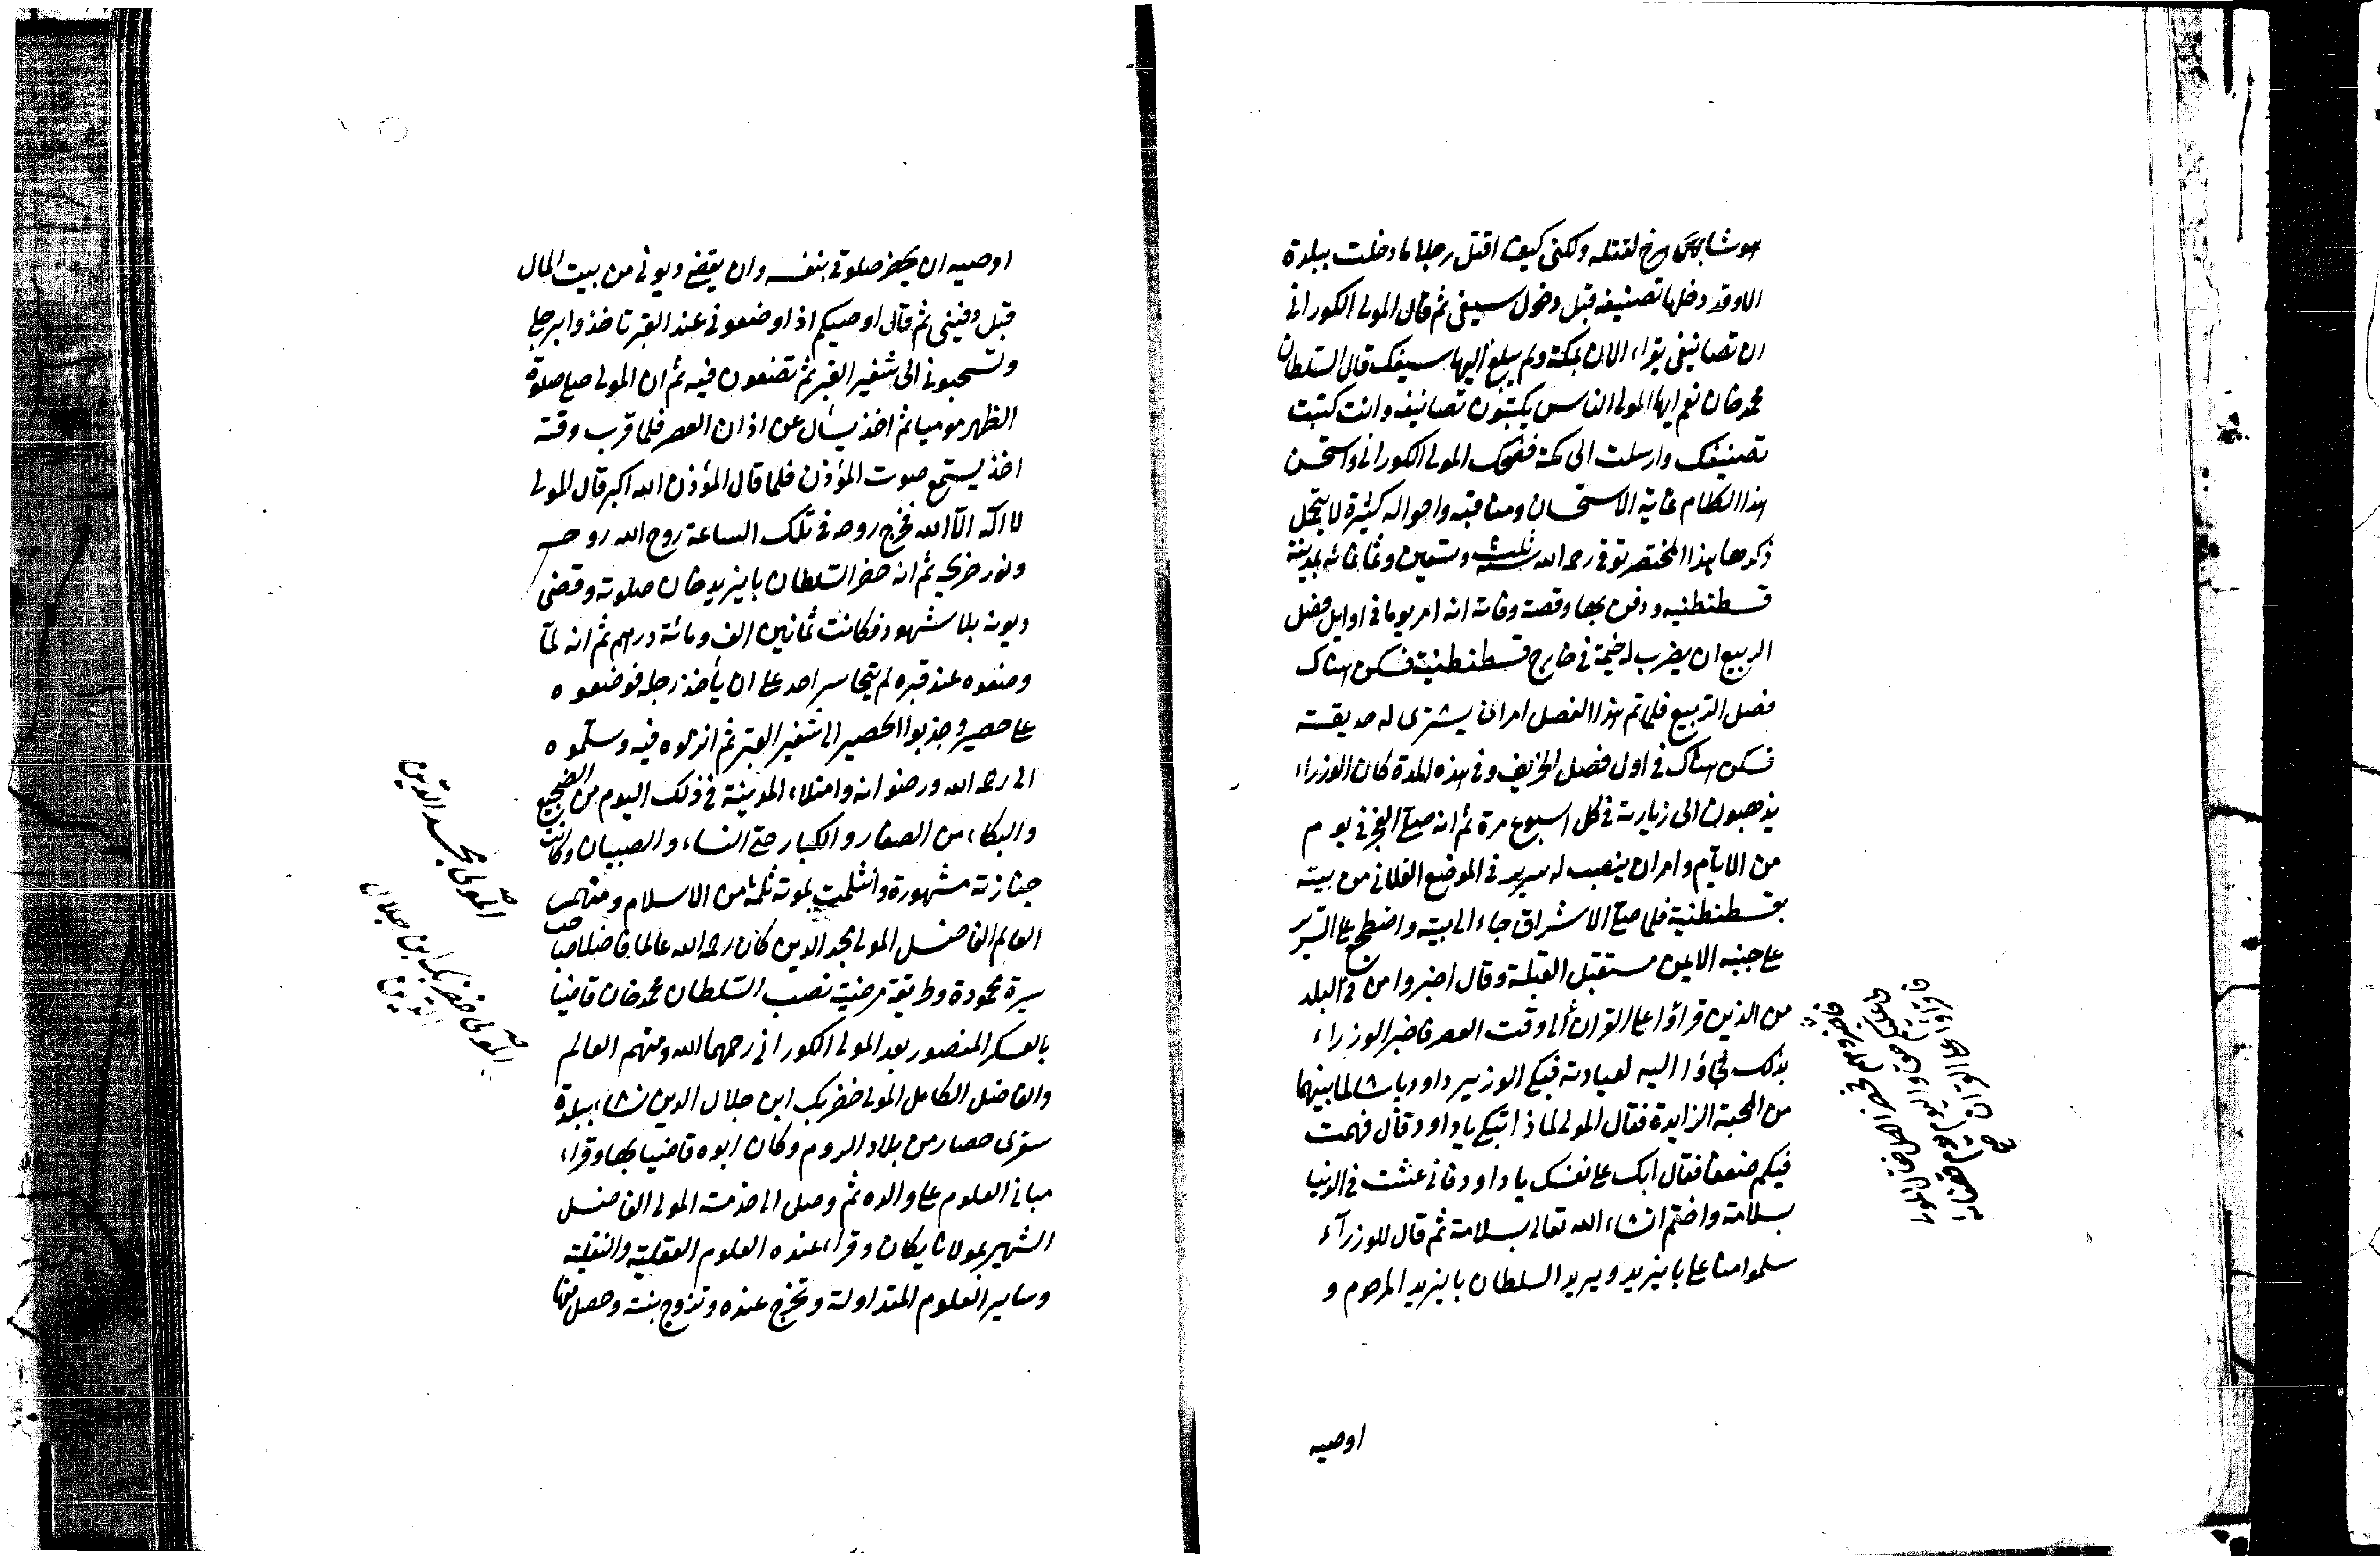 لقتله ولكنى كيف اقتل رجلا ما دخلت ببلدة
الا وقد دخلها تصنيفه قبل دخول سيفى ثم قال المولى الكورانى
ان تصانيفى يقراء الان بمكة ولم يبلغ اليها سيفك قال السلطان
محمد خان نعم ايها المولى الناس يكتبون تصانيفه وانت كتبت
تصنيفك وارسلت الى مكة فضحك المولى الكورانى واستحسن
هذا الكلام غاية الاستحسان ومناقبه واحواله كثيرة لا يتحمل
ذكرها هذا المختصر توفى رحمه الله سنة ثلث وتسعين وثمانمائه بمدينة
قسطنطنيه ودفن بها وقصة وفاته انه امر يوما فى اوايل فصل
الربيع ان يضرب له خيمة فى خارج قسطنطنية فسكن هناك
فصل الربيع فلما تم هذا الفصل امر ان يشترى له حديقته
فسكن هناك فى اول فصل الخريف وفى هذه المدة كان الوزراء
يذهبون الى زيارته فى كل اسبوع مرة ثم انه صلى الفجر فى يوم
من الايام وامر ان ينصب له سرير فى الموضع الفلانى من بيته
بقسطنطنية فلما صلى الاشراق جاء الى بيته واضطجع على السرير
على جنبه الايمن مستقبل القبلة وقال اخبروا من فى البلد
من الذين قراؤا على القران الى وقت العصر فاخبر الوزراء
بذلك فجاؤا اليه لعيادته فبكى الوزير داود پاشا لما بينهما
من المحبة الزايدة فقال المولى لماذا تبكى يا داود قال فهمت
فيكم ضعفا فقال ابك على نفسك يا داود فانى عشت فى الدنيا
بسلامة واختم انشاء الله تعالى بسلامة ثم قال للوزرآء
سلموا منا على بايزيد ويريد السلطان بايزيد المرحوم و
اوصيه
اوصيه ان يحضر صلوتى بنفسه وان يقضى ديونى من بيت المال
قبل دفينى ثم قال اوصيكم اذا وضعونى عند القبر تاخذوا برجلى
وتسحبونى الى شفير القبر ثم تضعون فيه ثم ان المولى صلى صلوة
الظهر موميا ثم اخذ يسأل عن اذان العصر فلما قرب وقته
اخذ يستمع صوت المؤذن فلما قال المؤذن الله اكبر قال المولى
لا اله الا الله فخرج روحه فى تلك الساعة روح الله روحه
ونور ضريحه ثم انه حضر السلطان بايزيد خان صلوته وقضى
ديونه بلا شهود فكانت ثمانين الف ومائة درهم ثم انه لما
وضعوه عند قبره لم يتجاسر احد على ان يأخذ رجله فوضعوه
على حصير وجذبوا الحصير الى شفير القبر ثم انزلوه فيه وسلموه
الى رحمه الله ورضوانه وامتلاء المدينة فى ذلك اليوم من الضجيج
والبكاء من الصغار والكبار حتى النساء والصبيان وكانت
جنازته مشهورة وانثلمت بموته ثلمة من الاسلام ومنهم
العالم الفاضل المولى مجد الدين كان رحمه الله عالما فاضلا صاحب
سيرة محمودة وطريقة مرضية نصب السلطان محمد خان قاضيا
بالعسكر المنصور بعد المولى الكورانى رحمهما الله ومنهم العالم
والفاضل الكامل المولى خضر بك ابن جلال الدين نشاء ببلدة
سفرى حصار من بلاد الروم وكان ابوه قاضيا بها وقراء
مبانى العلوم على والده ثم وصل الى خدمة المولى الفاضل
الشهير بمولانا يكان وقراء عنده العلوم العقلية والنقلية
وساير العلوم المتداولة وتخرج عنده وتزوج بنته وحصل منها
المولى مجد الدين
المولى خضر بك ابن جلال
الدين